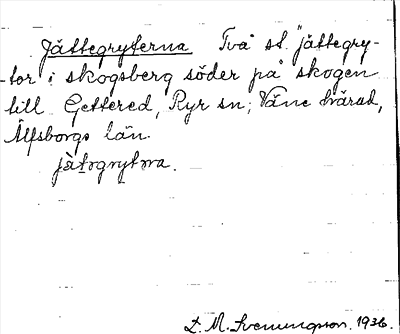 Jättegryterna Två st. "jättegry-
-tor i skogsberg söder på skogen
till Gettered, Ryr sn; Väne härad,
Älfsborgs län.
jätəgrytəna.
L. M. Svenungson. 1936.